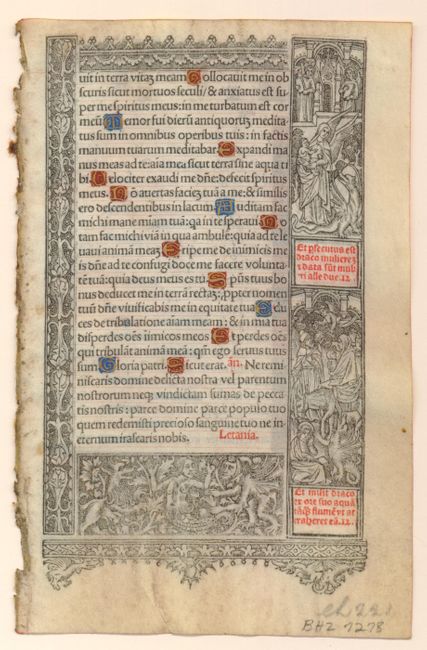 uit in terra vitaȝ meam Collocauit me in ob
scuris sicut mortuos seculi/ & anxiatus est su
per me spiritus meus: in me turbatum est cor
meũ Memor fui dierũ antiquorum medita
tus sum in omnibus operibus tuis: in factis
manuum tuarum meditabar. Expandi ma
nus meas ad te: aĩa mea sicut terra sine aqua ti
bi. Velociter exaudi me dñe: defecit spiritus
meus. Nõ auertas facieȝ tuã a me: & similis
ero descendentibus in lacum Auditam fac
michi mane miam tuã: qa in te speraui No
tam fac michi viã in qua ambulẽ: quia ad te le
uaui animã meã Eripe me de inimicis me
is dñe ad te confugi doce me facere volunta
tẽ tuã: quia deus meus es tu. Spũs tuus bo
nus deducet me in terrã rectaȝ: ꝓpter nomen
tuũ dñe viuificabis me in equitate tua Edu
ces de tribulatione aĩam meam: & in mĩa tua
disperdes oẽs inimicos meos Et perdes oẽs
qui tribulãt animã meã: qm̃ ego seruus tuus
sum Gloria patri. Sicut erat. añ. Ne remi
niscaris domine delicta nostra vel parentum
nostrorum neqȝ vindictam sumas de pecca
tis nostris: parce domine parce populo tuo
quem redemisti precioso sanguine tuo ne in
eternum irascaris nobis. Letania.
Et ꝓsecutus est
draco mulierẽ
&
data sũt mu
alle due. 12.
Et misit draco
ex ore suo aquã
tãqȝ flumẽ vt
traheret eã. 12.
BHZ 7278